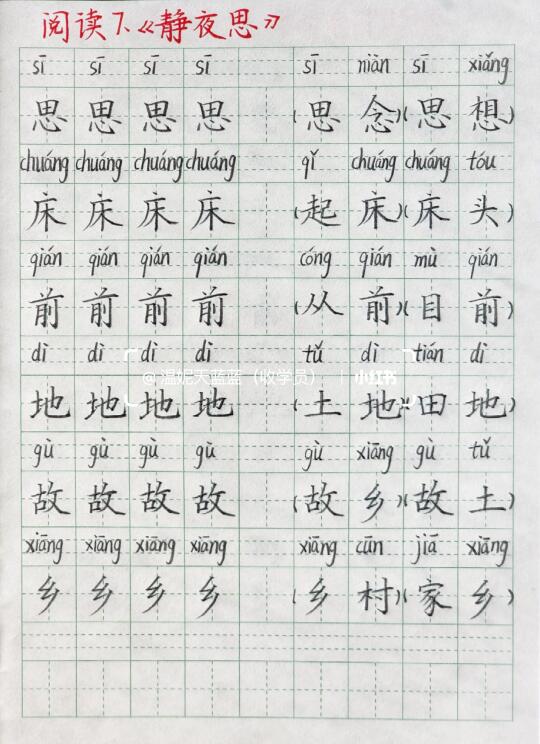 阅读7、《静夜思》
sī sī sī sī sī niàn sī xiǎng
思 思 思 思 (思 念)(思 想)
chuáng chuáng chuáng chuáng qǐ chuáng chuáng tóu
床 床 床 床 (起 床)(床 头)
qián qián qián qián cóng qián mù qián
前 前 前 前 (从 前)(目 前)
dì dì dì dì tǔ dì tián dì
@温妮天蓝蓝（收学员） | 小红书
地 地 地 地 (土 地)(田 地)
gù gù gù gù gù xiāng gù tǔ
故 故 故 故 (故 乡)(故 土)
xiāng xiāng xiāng xiāng xiāng cūn jiā xiāng
乡 乡 乡 乡 (乡 村)(家 乡)